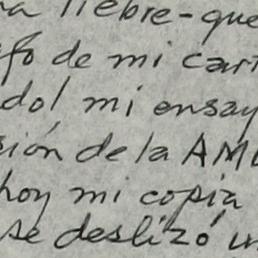 na liebre-que
afo de mi cart
dol mi ensay
sión de la AM
hoy mi copia
se deslizó un